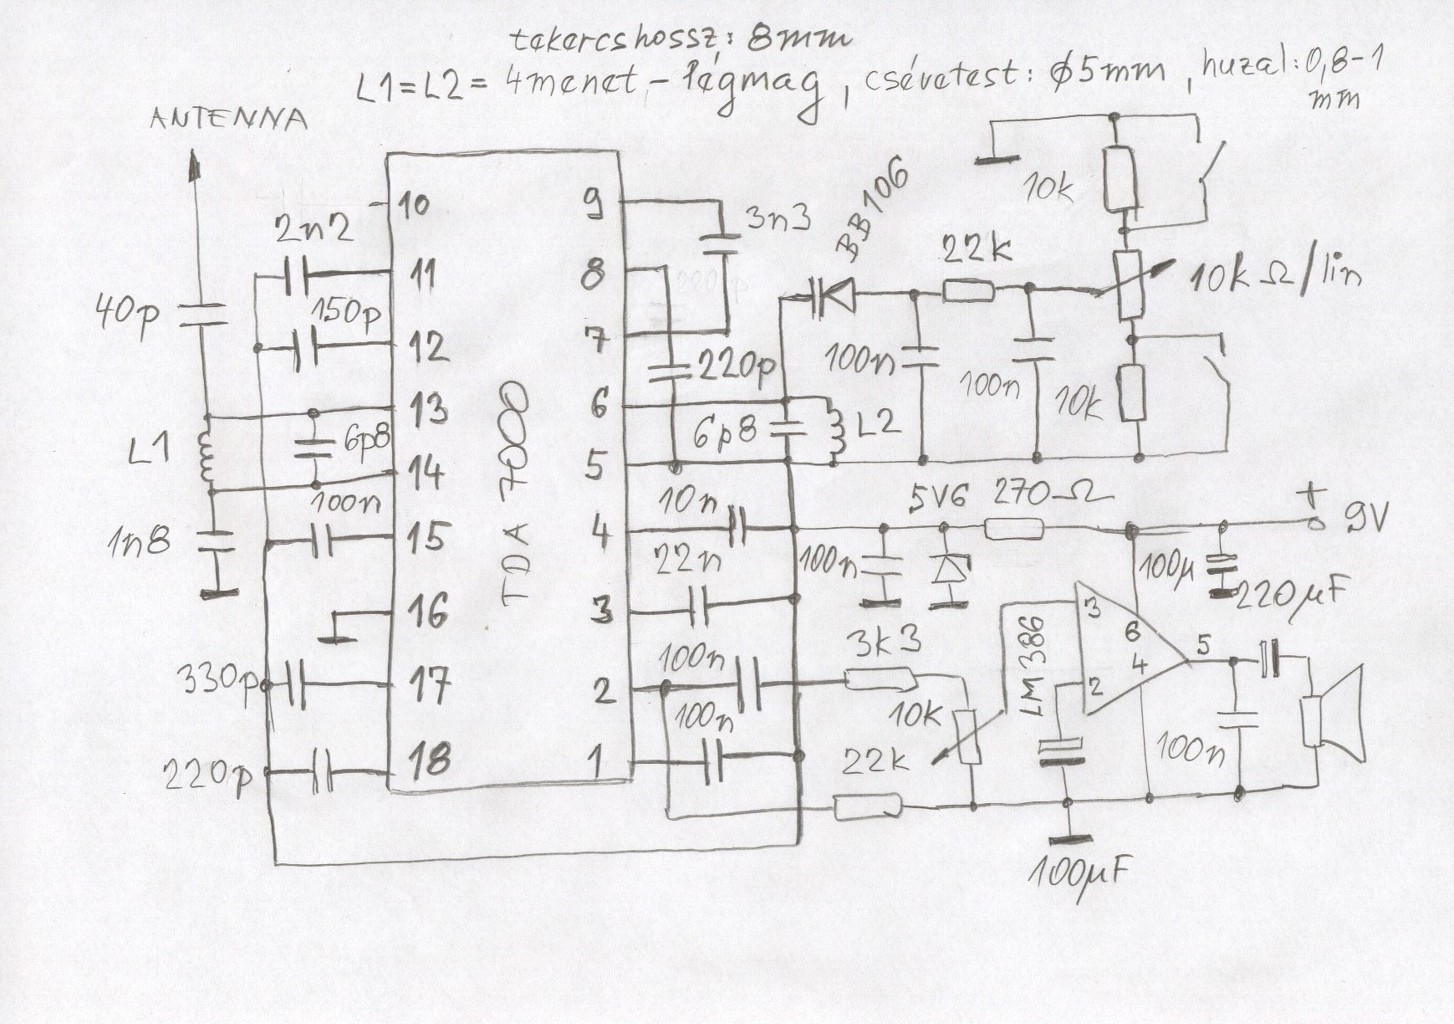 tekercshossz: 8mm
L1=L2= 4menet - légmag, csévetest: φ5mm, huzal: 0,8-1
mm
ANTENNA
10
9
3n3
BB106
10k
2n2
11
8
22k
10kΩ/lin
40p
150p
12
7
220p
100n
100n
10k
13
6
6p8
L2
L1
6p8
14
5
TDA 7000
100n
10n
5V6
270Ω
+
9V
1n8
15
4
22n
100n
100μ
220μF
16
3
3k3
LM386
3
6
5
4
2
330p
17
2
100n
10k
100n
220p
18
1
100n
22k
100μF